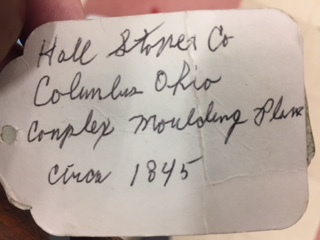 Hall Stoner Co
Columbus Ohio
Complex Moulding Plane
Circa 1845